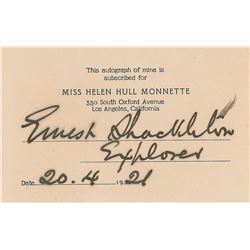 This autograph of mine is
subscribed for
MISS HELEN HULL MONNETTE
350 South Oxford Avenue
Los Angeles, Calif.
Ernest Shackleton
Explorer
Date 20.4 1921